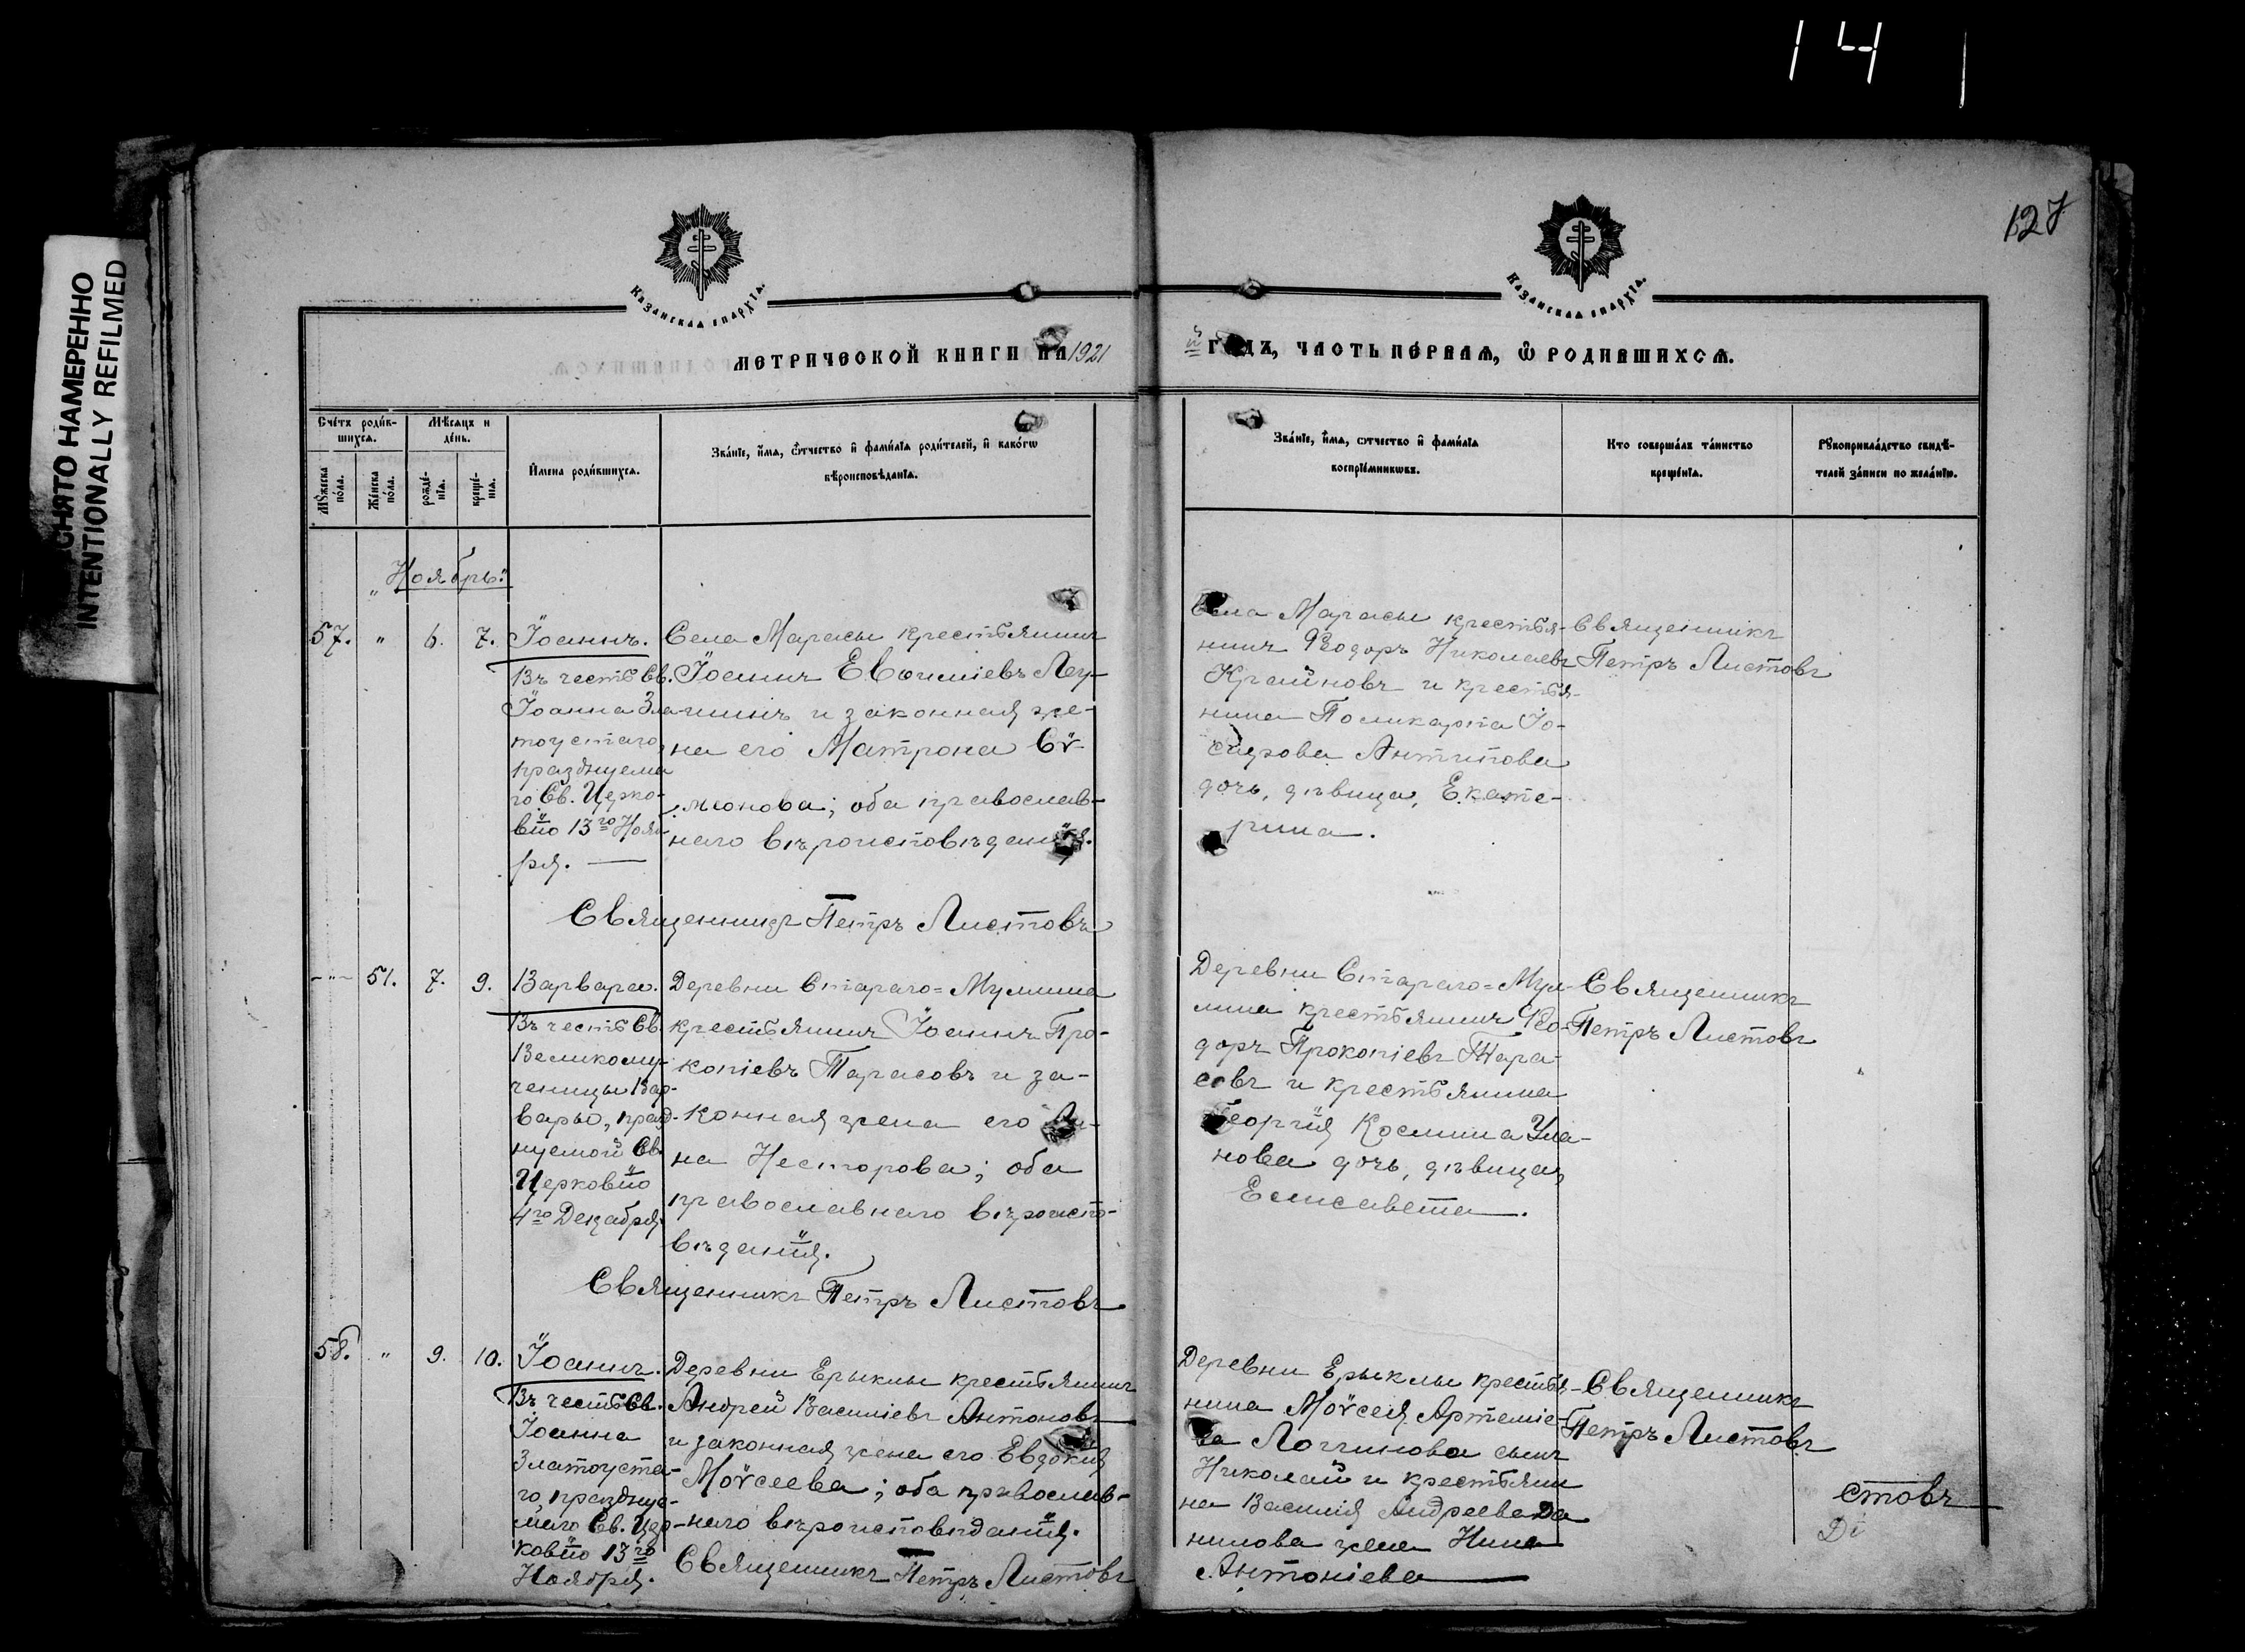 14
СНЯТО НАМЕРЕННО
INTENTIONALLY REFILMED
127
Казанская епархїа.
Казанская епархїа.
МЕТРИЧЕСКОЙ КНИГИ НА 1921
й ГОДЪ, ЧАСТЬ ПЕРВАЯ, Ѿ РОДИВШИХСЯ.
Сче́тъ роди́в-
шихся.
Мѣ́сяцъ и
де́нь.
Мꙋ́жеска
по́ла.
Же́нска
по́ла.
рожде́-
нїя.
креще́-
нїя.
И҆мена роди́вшихся.
Зва́нїе, и҆́мя, ѻ҆́тчество и҆ фами́лїя роди́телей, и҆ како́гѡ
вѣроисповѣ́данїя.
Зва́нїе, и҆́мя, ѻ҆тчество и҆ фами́лїя
воспрїе́мникѡвъ.
Кто совершалъ та́инство
креще́нїя.
Рꙋкоприкла́дство свидѣ́-
телей за́писи по жела́нїю.
Ноябрь:
57. " 6. 7. Іоаннъ.
Въ честь Св.
Іоанна Зла
тоустаго,
празднуема
го Св. Церко-
вію 13го Нояб
ря. —
Села Марасы крестьянинъ
Іоаннъ Евѳиміевъ Леу-
шинъ и законная же-
на его Матрона Сѵ-
меонова; оба православ-
наго вѣроисповѣданія.
Священникъ Петръ Листовъ
Села Марасы крестья-
нинъ Ѳеодоръ Николаевъ
Крайновъ и крестья-
нина Поликарпа Іо-
сифова Антипова
дочь, дѣвица, Екате-
рина.
Священникъ
Петръ Листовъ
-"- 51. 7. 9. Варвара.
Въ честь Св.
Великому-
ченицы Вар-
вары, празд-
нуемой Св.
Церковію
4го Декабря.
Деревни Стараго=Муллина
крестьянинъ Іоаннъ Про-
копіевъ Тарасовъ и за-
конная жена его
на Несторова; оба
православнаго вѣроиспо-
вѣданія.
Священникъ Петръ Листовъ
Деревни Стараго=Мул-
лина крестьянинъ Ѳео-
доръ Прокопіевъ Тара-
совъ и крестьянина
Георгія Космина Ула-
нова дочь, дѣвица,
Елисавета.
Священникъ
Петръ Листовъ
58. " 9. 10. Іоаннъ.
Въ честь Св.
Іоанна
Златоуста-
го, празднуе-
маго Св. Цер-
ковію 13го
Ноября.
Деревни Ерыклы крестьянинъ
Андрей Василіевъ Антоновъ
и законная жена его Евдокія
Моѵсеева; оба православ-
наго вѣроисповѣданія.
Священникъ Петръ Листовъ
Деревни Ерыклы крестья-
нина Моѵсея Артеміе-
ва Логгинова сынъ
Николай и крестьяни
на Василія Андреева Да
нилова жена Нина
Антоніева
Священникъ
Петръ Листовъ
стовъ
Ді